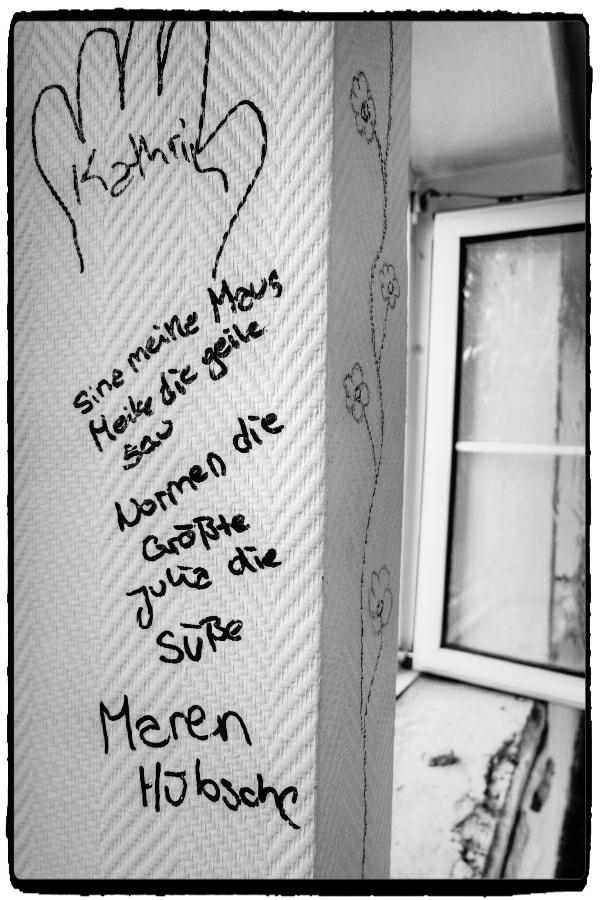 Kathrin
sine meine Maus
Meike die geile
sau
Normen die
Größte
Julia die
Süße
Maren
Hübsche